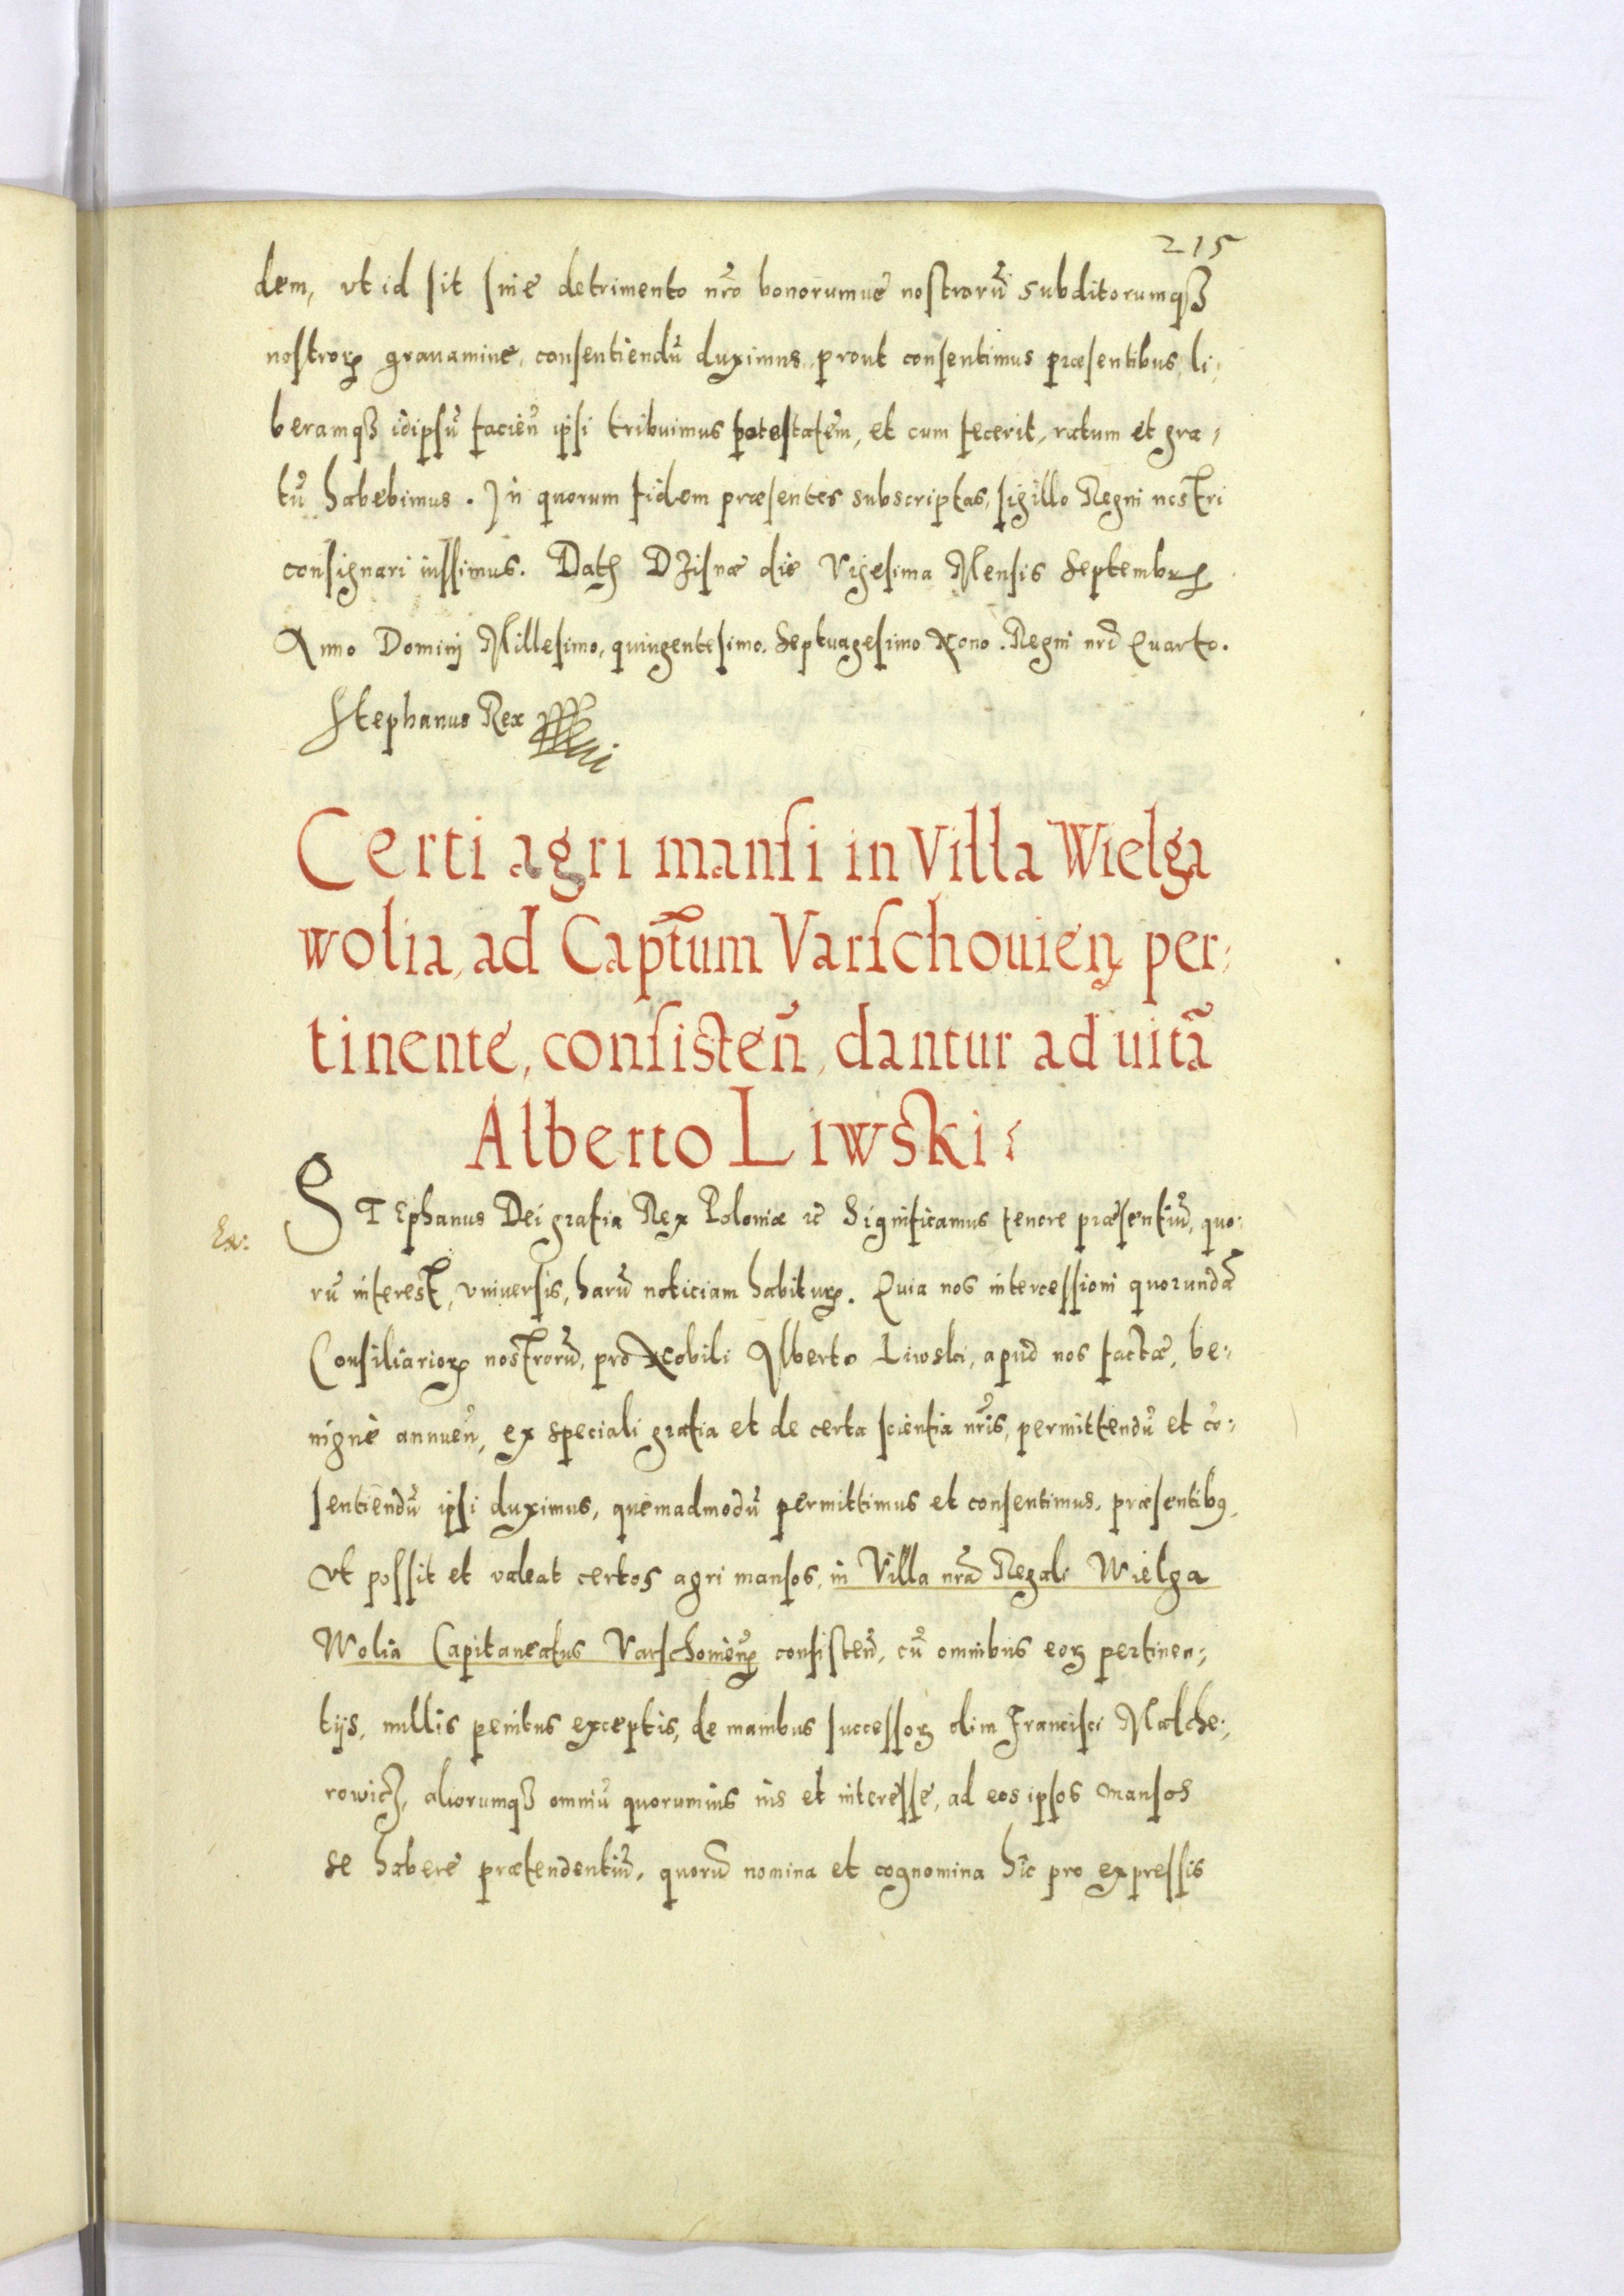 215
dem, vt id sit sine detrimento nr̃o bonorumue nostrorũ subditorumqꝫ
nostroꝝ grauamine, consentiendũ duximus, prout consentimus præsentibus, li,
beramqꝫ idipsũ facieñ ipsi tribuimus potestatem, et cum fecerit, ratum et gra,
tũ habebimus. In quorum fidem præsentes subscriptas, sigillo Regni nostri
consignari iussimus. Datꝭ DZisnæ die Vigesima Mensis Septembrꝭ
Anno Dominj Millesimo, quingentesimo. Septuagesimo Nono. Regni nrĩ Quarto.
Stephanus Rex
Certi agri mansi in Villa Wielga
wolia, ad Captũm Varschouieñ per,
tinente, consisteñ, dantur ad uitã
Alberto Liwski:
STEphanus Dei gratia Rex Poloniæ ꝛc Significamus tenore præsentiũ, quo:
Ex:
rũ interest, vniuersis, harũ noticiam habituꝝ. Quia nos intercessioni quorundã
Consiliarioꝝ nostrorũ, pro Nobili Alberto Liwski, apud nos factæ, be:,
nigne annueñ, ex speciali gratia et de certa scientia nr̃is, permittendũ et cõ:
sentiendũ ipsi duximus, quemadmodũ permittimus et consentimus. præsentibꝰ,
vt possit et valeat certos agri mansos, in Villa nrã Regali Wielga
Wolia Capitaneatus Varschouieñꝭ consisteñ, cũ omnibus eoꝝ pertinen:,
tijs, nullis penitus exceptis, de manibus successoꝝ olim Francisci Malche:,
rowicz, aliorumqꝫ omniũ quorumuis ius et interesse, ad eos ipsos mansos
se habere prætendentiũ, quorũ nomina et cognomina hic pro expressis